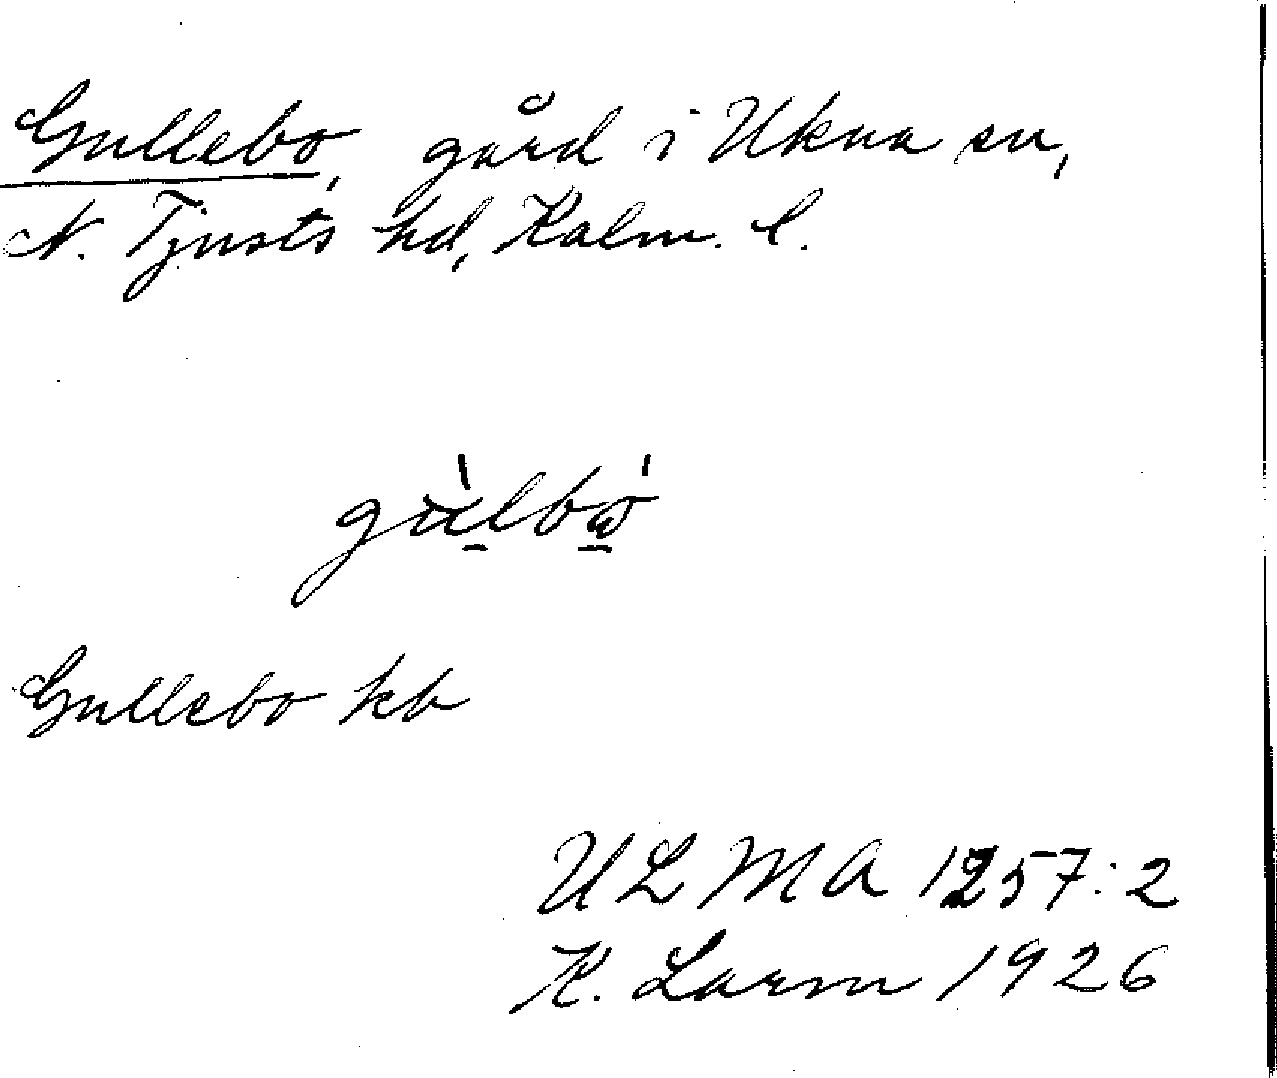 Gullebo, gård i Ukna sn,
N. Tjusts hd, Kalm. l.
Gullebo kb
ULMA 1257:2
K. Larm 1926